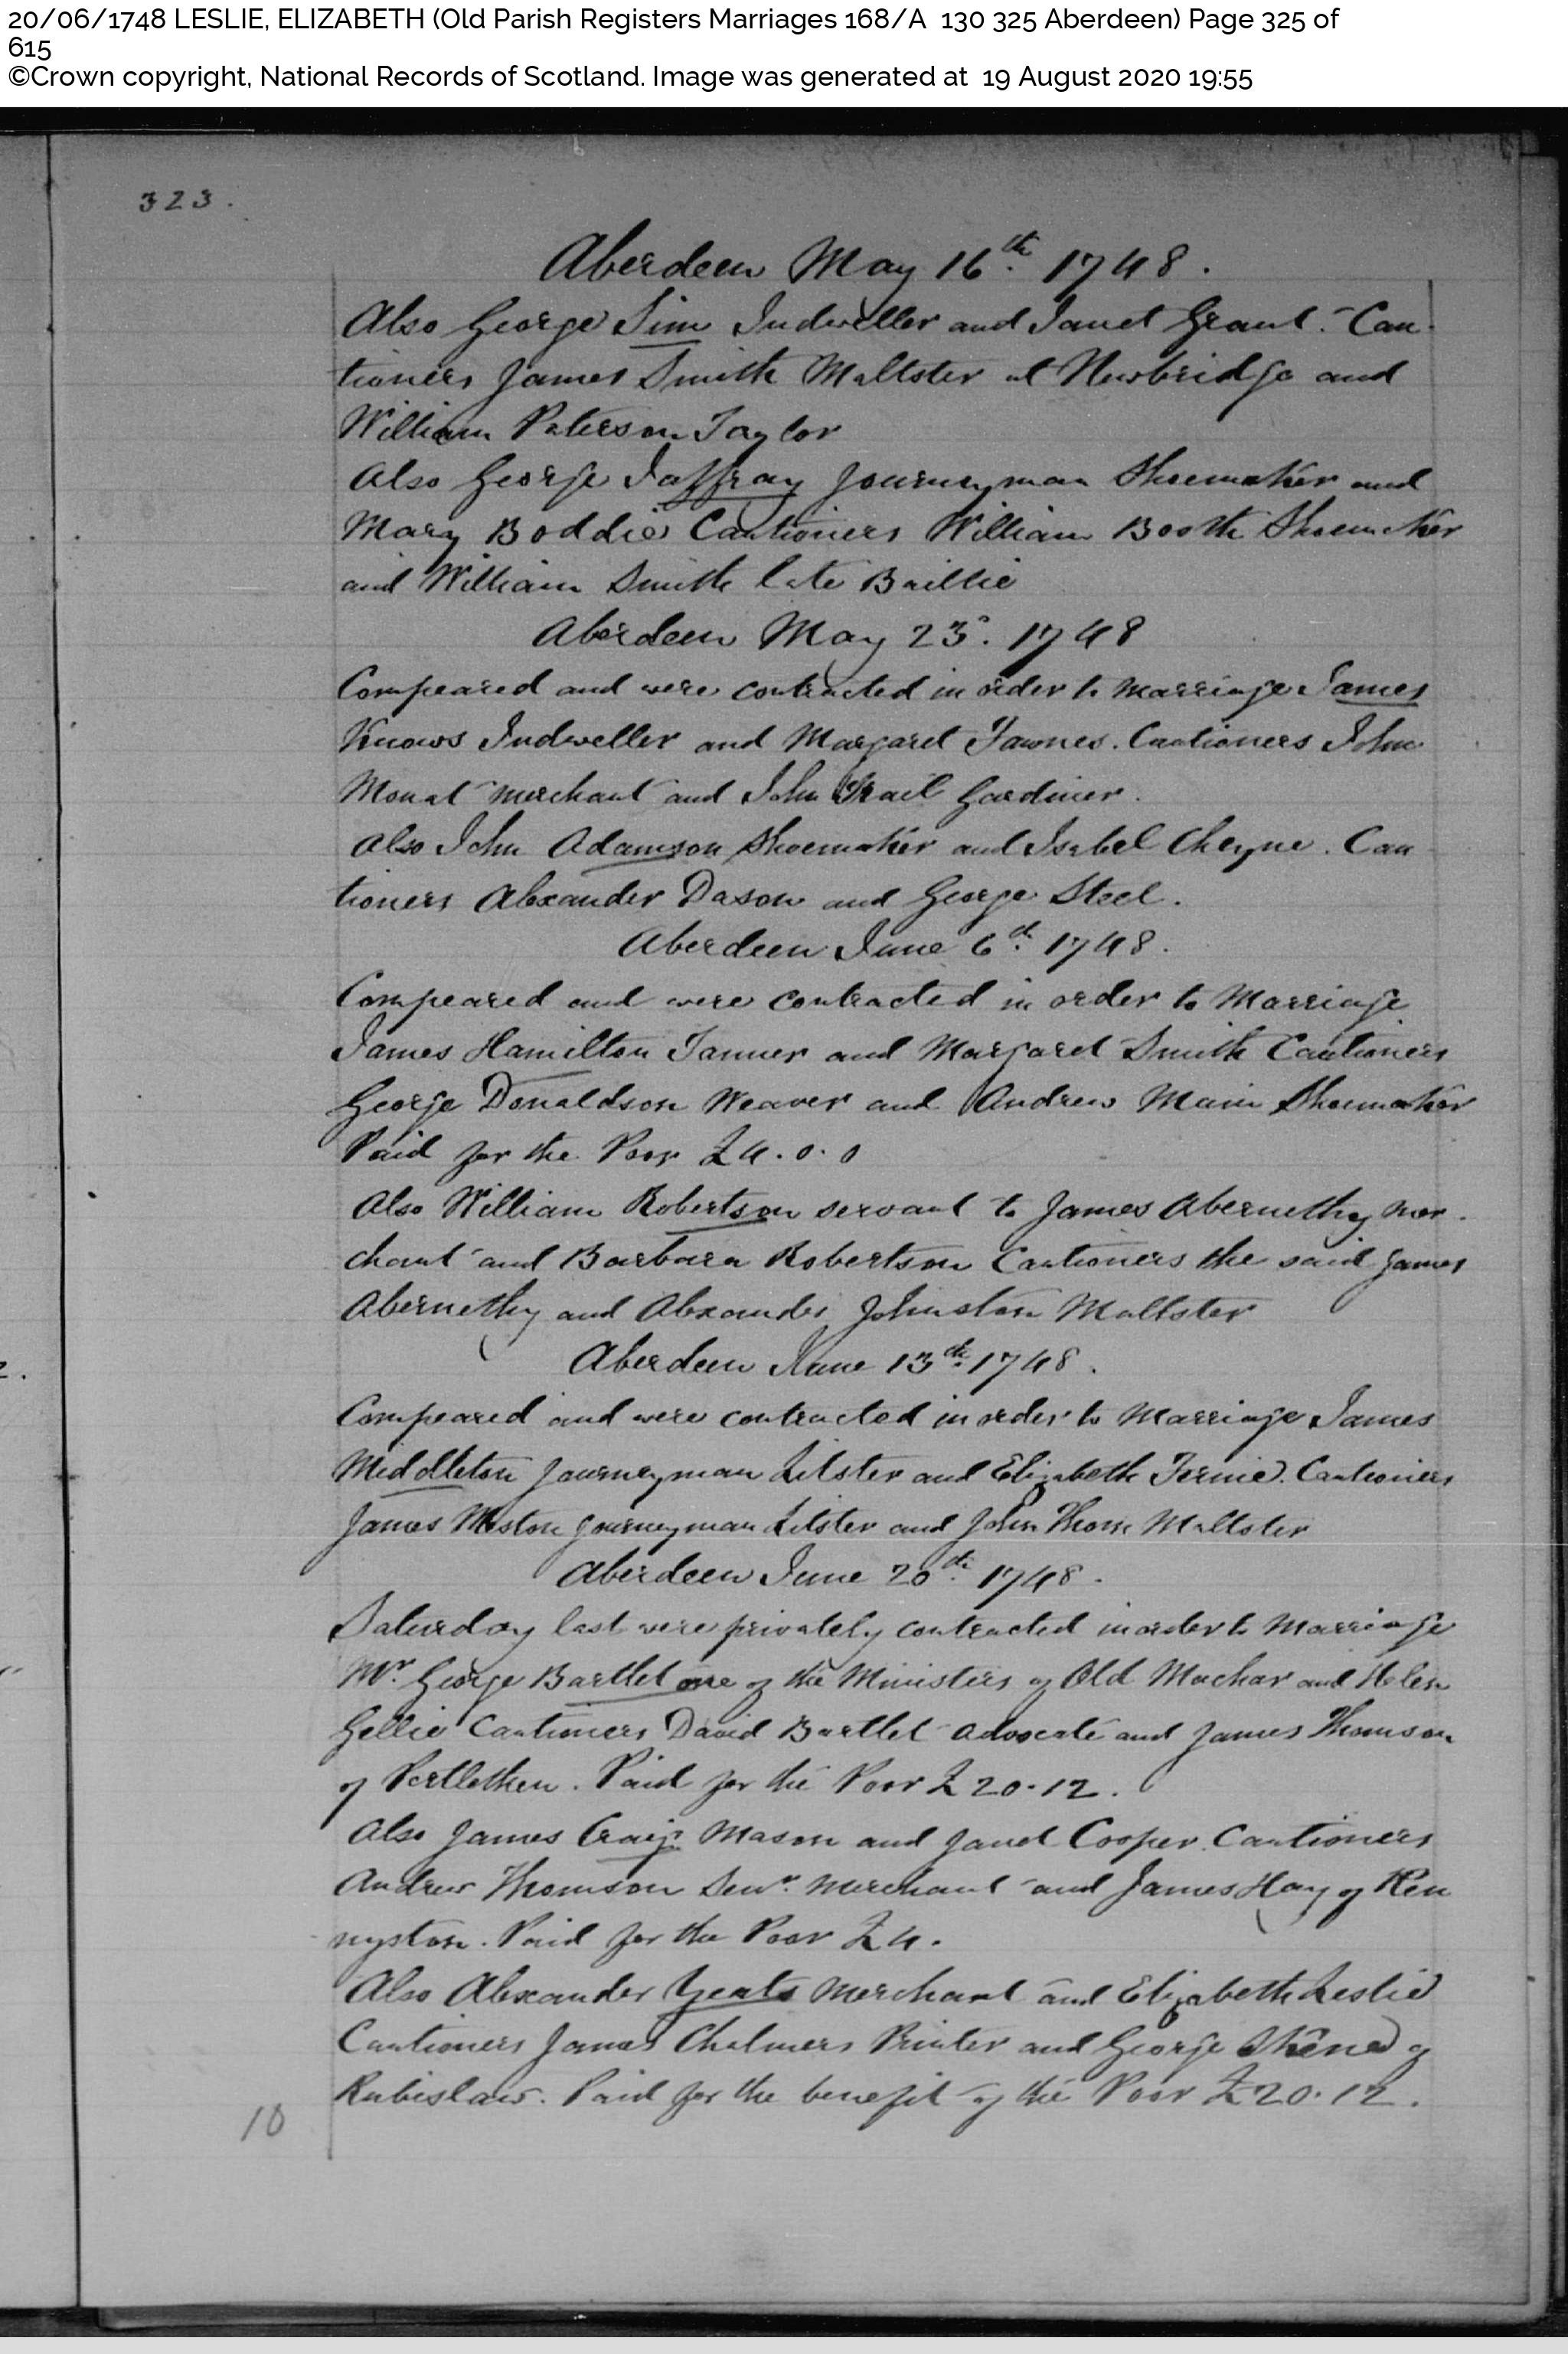 20/06/1748 LESLIE, ELIZABETH (Old Parish Registers Marriages 168/A 130 325 Aberdeen) Page 325 of
615
©Crown copyright, National Records of Scotland. Image was generated at 19 August 2020 19:55
323.
Aberdeen May 16th. 1748.
Also George Sim Indweller and Janet Grant. Cau-
tioners James Smith Maltster at Newbridge and
William Paterson Taylor
Also George Jaffray Journeyman Shoemaker and
Mary Boddie Cautioners William Booth Shoemaker
and William Smith late Baillie
Aberdeen May 23. 1748
Compeared and were contracted in order to Marriage James
Knows Indweller and Margaret Fawnes. Cautioners John
Mouat merchant and John Gardiner.
Also John Adamson Shoemaker and Isabel Cheyne. Cau
tioners Alexander Dason and George Steel.
Aberdeen June 6th. 1748.
Compeared and were contracted in order to Marriage
James Hamilton Tanner and Margaret Smith Cautioners
George Donaldson Weaver and Andrew Main Shoemaker
Paid for the Poor £4.0.0
Also William Robertson servant to James Abernethy mer-
chant and Barbara Robertson Cautioners the said James
Abernethy and Alexander Johnston Maltster
Aberdeen June 13th. 1748.
Compeared and were contracted in order to Marriage James
Middleton Journeyman Litster and Elizabeth Fernie. Cautioners
James Meston Journeyman Litster and John Thom Maltster
Aberdeen June 20th. 1748.
Saturday last were privately contracted in order to Marriage
Mr. George Bartlet one of the Ministers of Old Machar and Helen
Gellie Cautioners David Bartlet Advocate and James Thomson
of Portlethen. Paid for the Poor £20.12.
Also James Craig Mason and Janet Cooper. Cautioners
Andrew Thomson Senr. Merchant and James Hay of Ren
nyston. Paid for the Poor £4.
Also Alexander Yeats Merchant and Elizabeth Leslie
Cautioners James Chalmers Printer and George Skene of
Rubislaw. Paid for the benefit of the Poor £20.12.
10